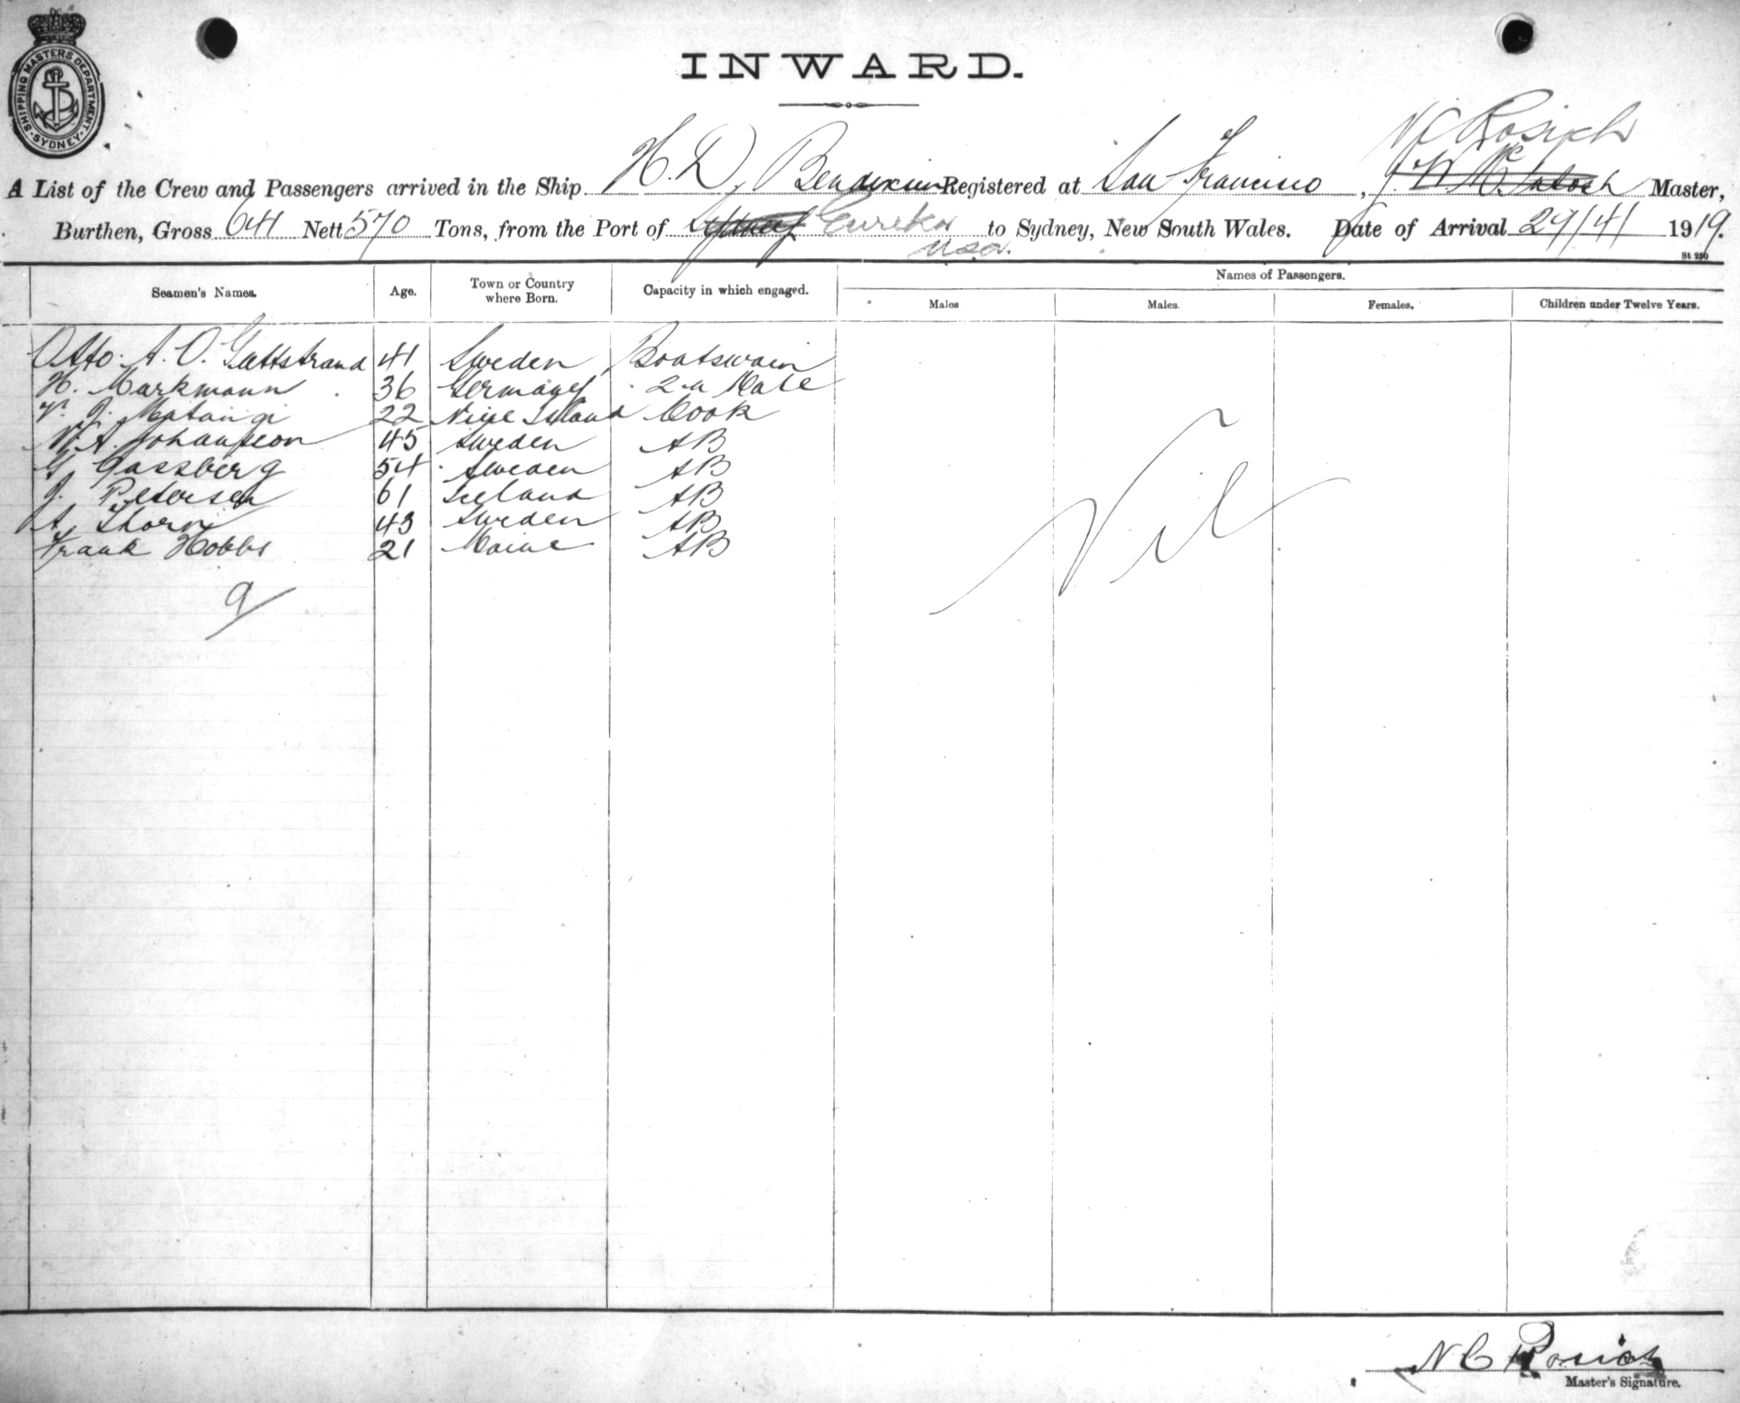 SHIPPING MASTERS DEPARTMENT
SYDNEY
INWARD.
N C Rosich
A List of the Crew and Passengers arrived in the Ship H. D. Bendixsen Registered at San Francisco, J. W. McIntosh Master,
Burthen, Gross 641 Nett 570 Tons, from the Port of Sydney Eureka to Sydney, New South Wales. Date of Arrival 29/4/ 1919.
USA.
St 290
Seamen's Names. Age. Town or Country where Born. Capacity in which engaged. Names of Passengers.
Males Males. Females. Children under Twelve Years.
Otto. A. O. Gattstrand 41 Sweden Boatswain
H. Markmann 36 Germany 2nd Mate
J. Matangi 22 Niue Island Cook
A. Johansson 45 Sweden AB
G. Gassberg 54 Sweden AB
J. Petersen 61 Iceland AB
A. Thorn 43 Sweden AB
Frank Hobbs 21 Maine AB
Nil
9
N C Rosich
Master's Signature.